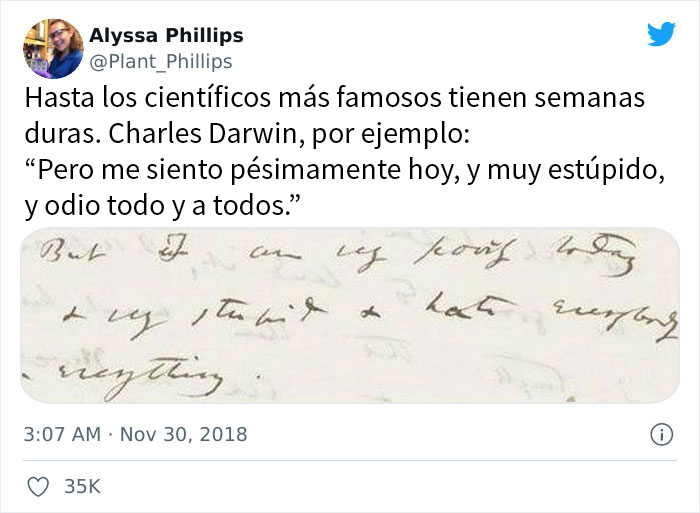 Alyssa Phillips
@Plant_Phillips
Hasta los científicos más famosos tienen semanas
duras. Charles Darwin, por ejemplo:
“Pero me siento pésimamente hoy, y muy estúpido,
y odio todo y a todos.”
But I am very poorly today
& very stupid & hate everybody
& everything.
3:07 AM · Nov 30, 2018
35K